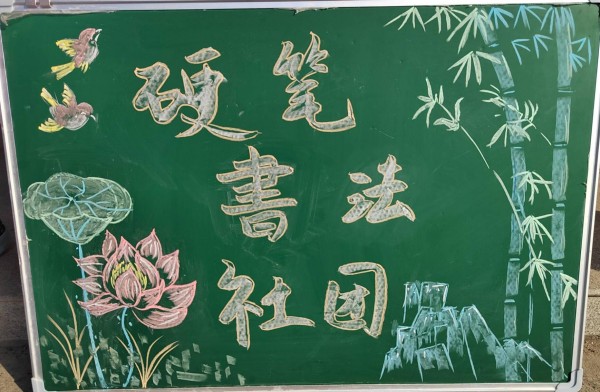 硬笔
書法
社团